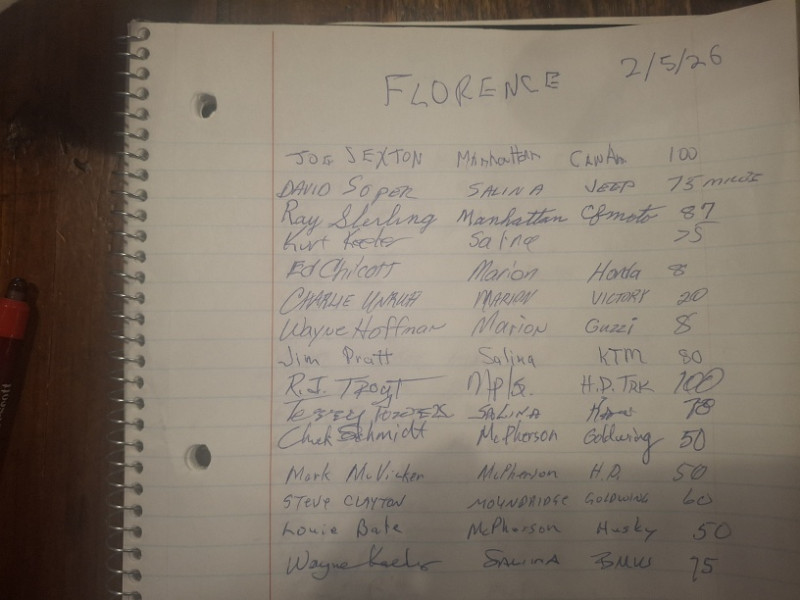 FLORENCE 2/5/26
JOE SEXTON Manhattan CANAM 100
DAVID SOPER SALINA JEEP 75 MINUTE
Ray Sterling Manhattan Cfmoto 87
Kurt Keeler Salina 75
Ed Chicott Marion Honda 8
CHARLIE UNRUH MARION VICTORY 20
Wayne Hoffman Marion Guzzi 8
Jim Pratt Salina KTM 80
R.J. M/P/G. H.D. TRK 100
SALINA
Chuck Schmidt McPherson Goldwing 50
Mark McVicker McPherson H.D. 50
STEVE CLAYTON MOUNDRIDGE GOLDWING 60
Louie Bate McPherson Husky 50
Wayne Keeler SALINA BMW 75